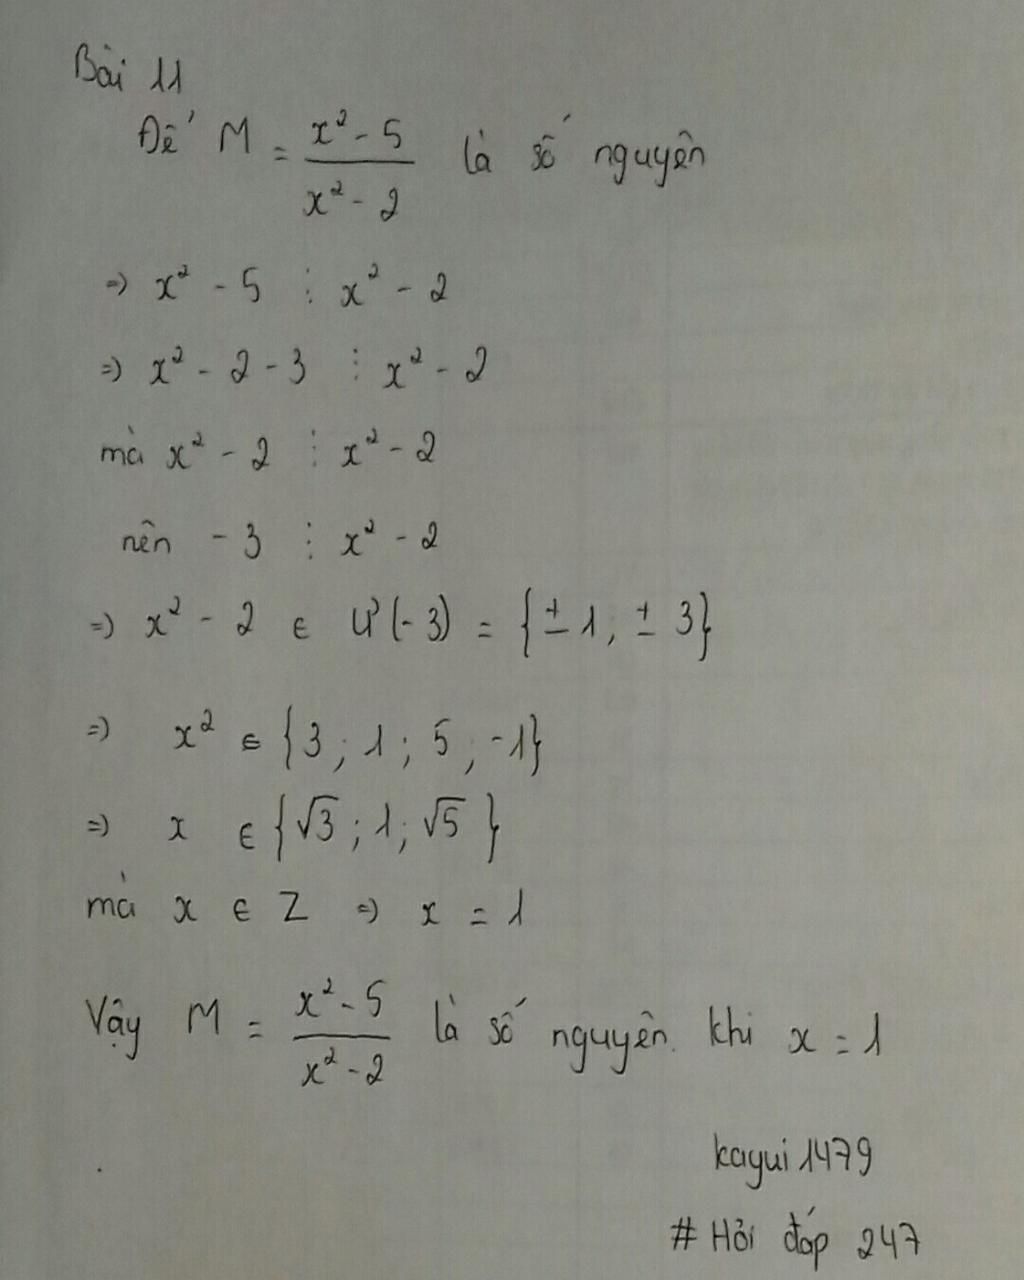 Bài 11
Để M = (x² - 5)/(x² - 2) là số nguyên
=> x² - 5 ⋮ x² - 2
=> x² - 2 - 3 ⋮ x² - 2
mà x² - 2 ⋮ x² - 2
nên - 3 ⋮ x² - 2
=> x² - 2 ∈ Ư(-3) = {± 1; ± 3}
=> x² ∈ {3; 1; 5; -1}
=> x ∈ {√3; 1; √5}
mà x ∈ Z => x = 1
Vậy M = (x² - 5)/(x² - 2) là số nguyên. khi x = 1
kayui 1479
# Hỏi đáp 247